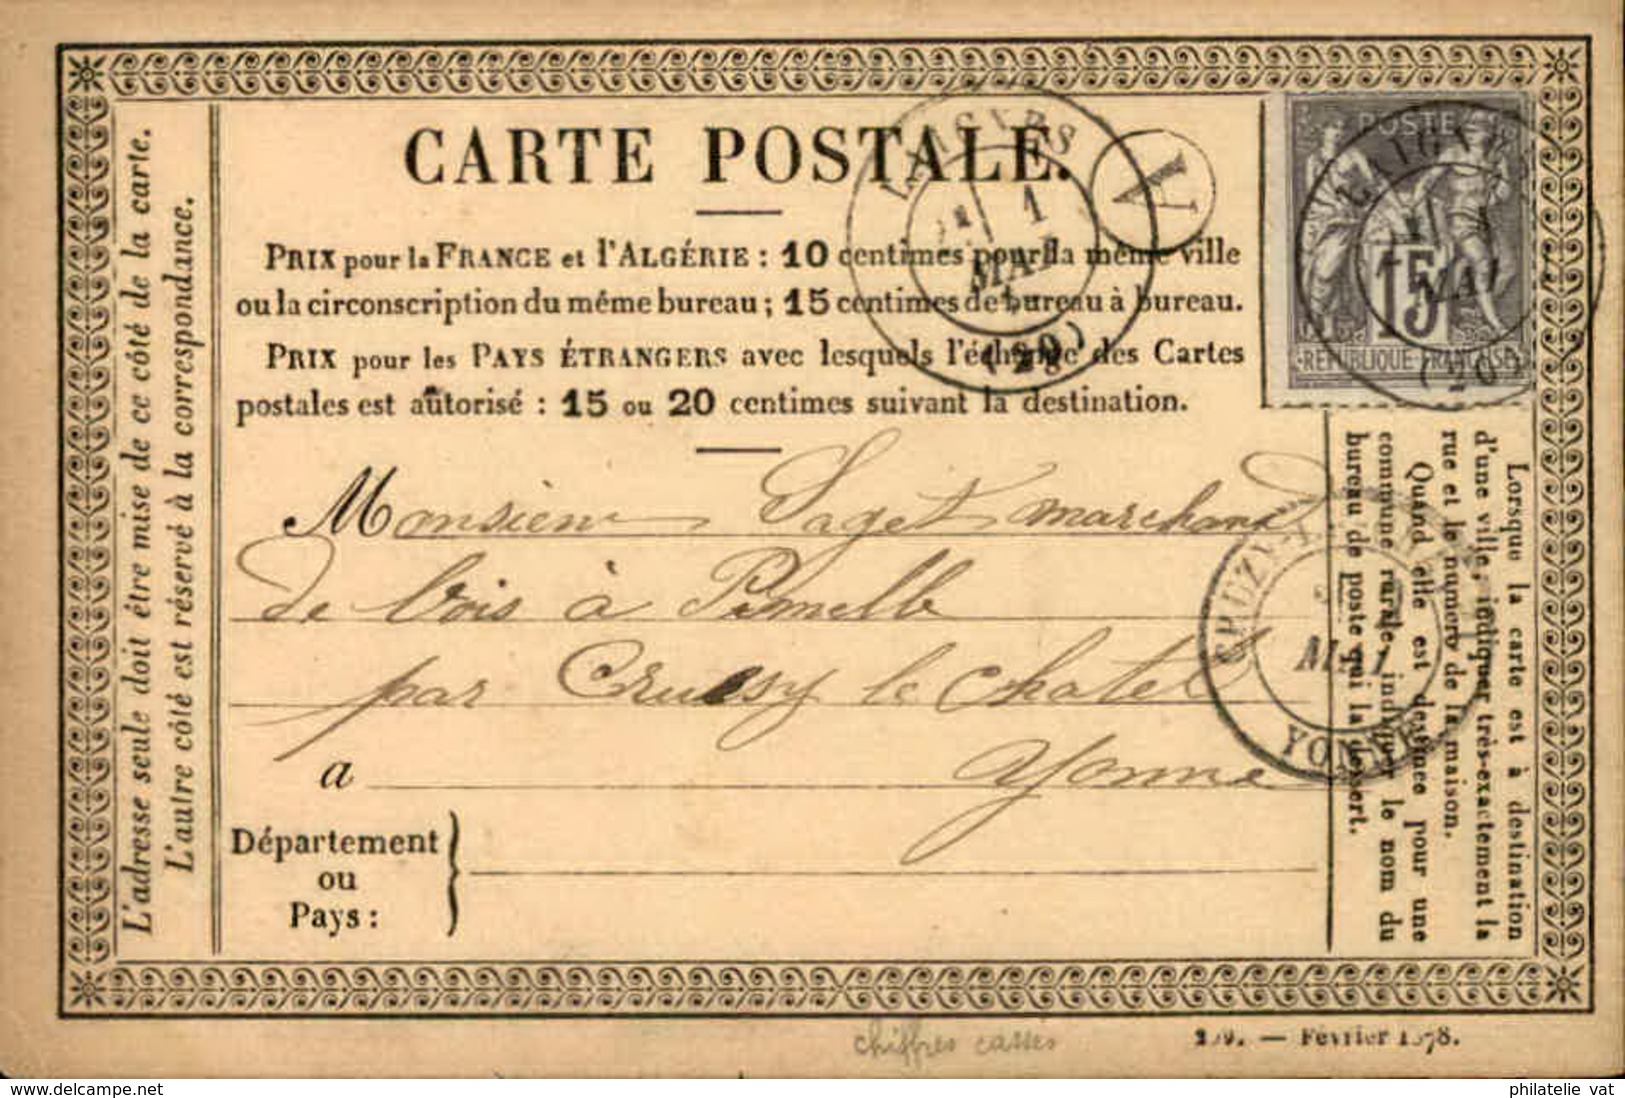 CARTE POSTALE.
PRIX pour la FRANCE et l'ALGÉRIE : 10 centimes pour la même ville
ou la circonscription du même bureau ; 15 centimes de bureau à bureau.
PRIX pour les PAYS ÉTRANGERS avec lesquels l'échange des Cartes
postales est autorisé : 15 ou 20 centimes suivant la destination.
LAIGNES
1
MAI
(20)
A
POSTE
15
REPUBLIQUE FRANÇAISE
LAIGNES
MAI
(20)
L'adresse seule doit être mise de ce côté de la carte.
L'autre côté est réservé à la correspondance.
Monsieur Saget marchand
de bois à Pimelle
par Cruesy le Chatel
a
Yonne
Département
ou
Pays :
CRUZY-
MAI
YONNE
Lorsque la carte est à destination
d'une ville, indiquer très-exactement la
rue et le numéro de la maison.
Quand elle est destinée pour une
commune rurale, indiquer le nom du
bureau de poste qui la dessert.
chiffres cassés
— Février 1878.
philatelie-vat.com
philatelie vat